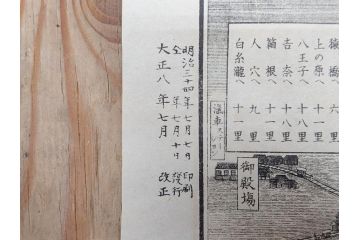 猿橋へ 六里
上の原へ 十一里
八王子へ 十八里
吉奈へ 十八里
箱根へ 十一里
人穴へ 九里
白糸瀧へ 十一里
滊車ステーション
御殿場
明治三十四年七月七日印刷
仝年七月十日發行
大正八年七月改正